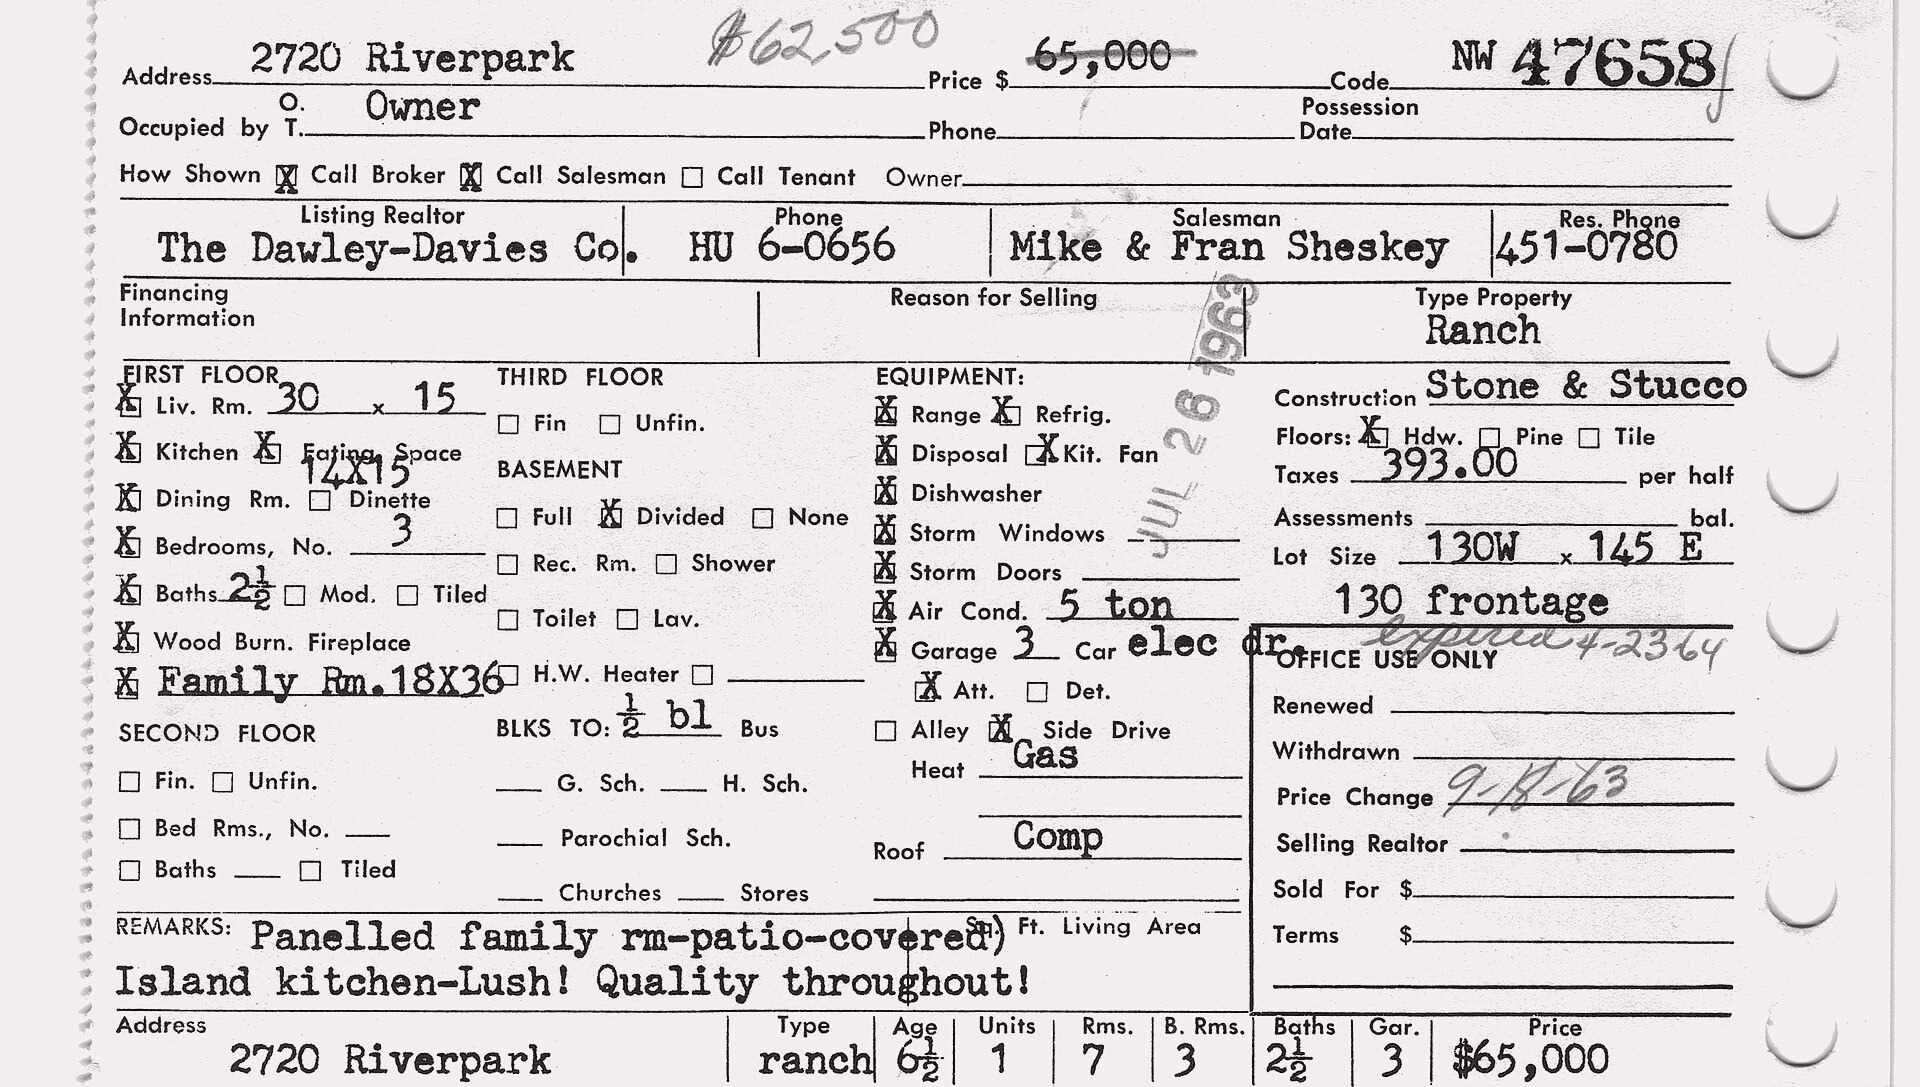 $62,500
Address 2720 Riverpark Price $ 65,000 Code NW 47658
Occupied by O. T. Owner Phone Possession Date
How Shown X Call Broker X Call Salesman Call Tenant Owner
Listing Realtor Phone Salesman Res. Phone
The Dawley-Davies Co. HU 6-0656 Mike & Fran Sheskey 451-0780
Financing Information Reason for Selling Type Property
Ranch
JUL 26 1963
FIRST FLOOR
X Liv. Rm. 30 x 15
X Kitchen X Eating Space
14X15
X Dining Rm. Dinette
X Bedrooms, No. 3
X Baths 2½ Mod. Tiled
X Wood Burn. Fireplace
X Family Rm. 18X36
SECOND FLOOR
Fin. Unfin.
Bed Rms., No.
Baths Tiled
THIRD FLOOR
Fin Unfin.
BASEMENT
Full X Divided None
Rec. Rm. Shower
Toilet Lav.
H.W. Heater
BLKS TO: ½ bl Bus
G. Sch. H. Sch.
Parochial Sch.
Churches Stores
EQUIPMENT:
X Range X Refrig.
X Disposal X Kit. Fan
X Dishwasher
X Storm Windows
X Storm Doors
X Air Cond. 5 ton
X Garage 3 Car elec dr.
X Att. Det.
Alley X Side Drive
Heat Gas
Roof Comp
Construction Stone & Stucco
Floors: X Hdw. Pine Tile
Taxes 393.00 per half
Assessments bal.
Lot Size 130W x 145 E
130 frontage
expired 4-23-64
OFFICE USE ONLY
Renewed
Withdrawn
Price Change 9-18-63
Selling Realtor
Sold For $
Terms $
REMARKS: Panelled family rm-patio-covered) Sq. Ft. Living Area
Island kitchen-Lush! Quality throughout!
Address Type Age Units Rms. B. Rms. Baths Gar. Price
2720 Riverpark ranch 6½ 1 7 3 2½ 3 $65,000